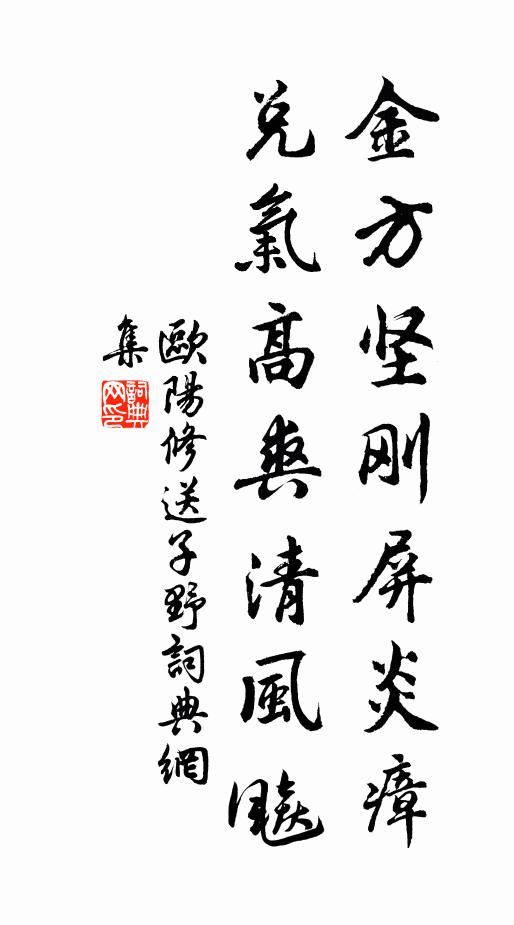 金方坚刚屏炎瘴
兑氣高爽清風飈
歐陽修送子野詞典網
集
詞典网印